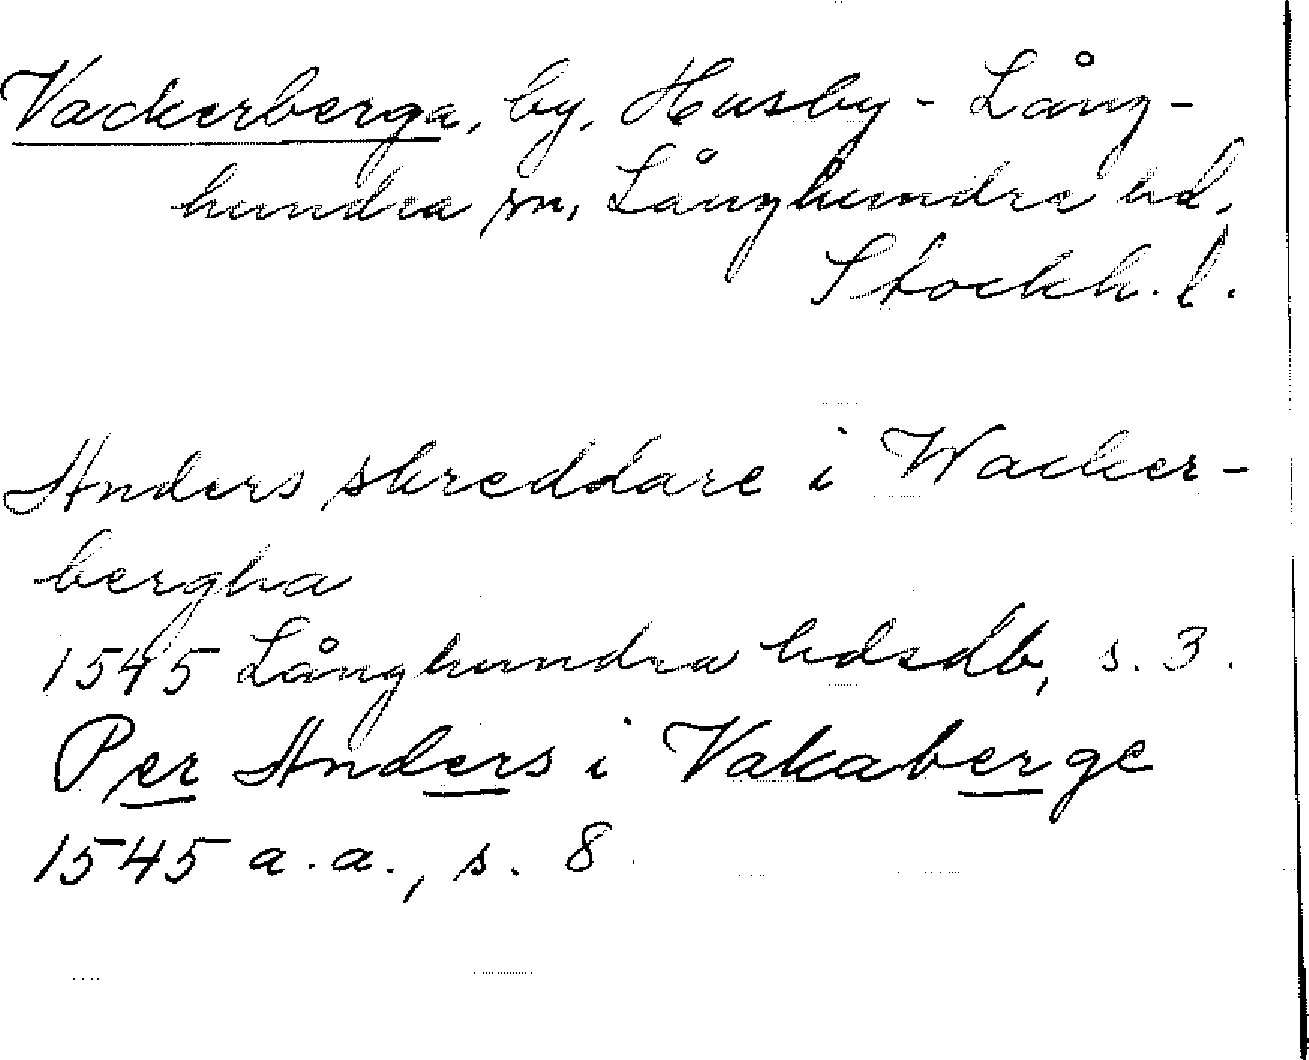 Vackerberga, by, Husby-Lång-
hundra sn, Långhundra hd,
Stockh. l.
Anders skreddare i Wacker-
bergha
1545 Långhundra hdsdb, s. 3.
Per Anders i Vakaberge
1545 a.a., s. 8